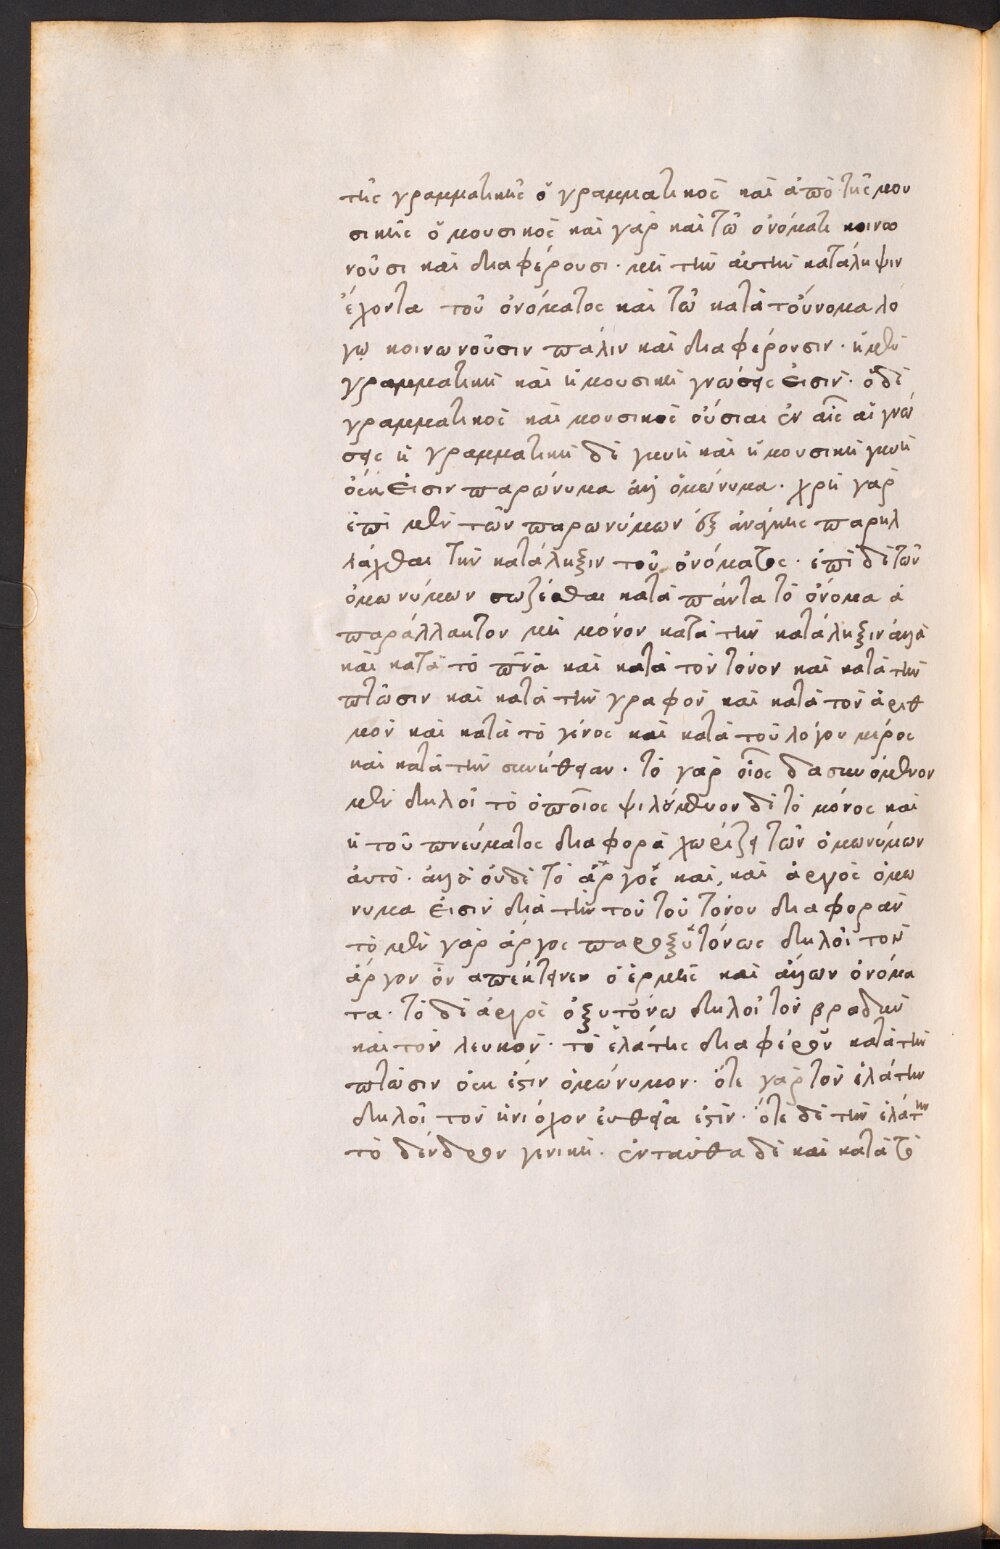 τῆς γραμματικῆς ὁ γραμματικὸς καὶ ἀπὸ τῆς μου
σικῆς ὁ μουσικὸς καὶ γὰρ καὶ τῶ ὀνόματι κοινω
νοῦσι καὶ διαφέρουσι· μὴ τὴν αὐτὴν κατάληψιν
ἔχοντα τοῦ ὀνόματος καὶ τῶ κατὰ τοὔνομα λό
γω κοινωνοῦσιν πάλιν καὶ διαφέρουσιν· ἡ μὲν
γραμματικὴ καὶ ἡ μουσικὴ γνώσεις εἰσιν· ὁ δὲ
γραμματικὸς καὶ μουσικὸς οὐσίαι ἐν αἷς αἱ γνώ
σεις ἡ γραμματικὴ δὲ γυνὴ καὶ ἡ μουσικὴ γυνὴ
οὐκ εἰσιν παρώνυμα ἀλλ ὁμώνυμα· χρὴ γὰρ
ἐπὶ μὲν τῶν παρωνύμων ἐξ ἀνάγκης παρηλ
λάχθαι τὴν κατάληξιν τοῦ ὀνόματος· ἐπὶ δὲ τῶν
ὁμωνύμων σωζέσθαι κατὰ πάντα τὸ ὄνομα ἀ
παράλλακτον μὴ μόνον κατὰ τὴν κατάληξιν ἀλλὰ
καὶ κατὰ τὸ πνα καὶ κατὰ τὸν τόνον καὶ κατὰ τὴν
πτῶσιν καὶ κατὰ τὴν γραφὸν καὶ κατὰ τὸν ἀριθ
μὸν καὶ κατὰ τὸ γένος καὶ κατὰ τοῦ λόγου μέρος
καὶ κατὰ τὴν συνήθειαν· τὸ γὰρ οἷος δασυνόμενον
μὲν δηλοῖ τὸ ὁποῖος ψιλούμενον δὲ τὸ μόνος καὶ
ἡ τοῦ πνεύματος διαφορὰ χωρίζει τῶν ὁμωνύμων
αὐτό· ἀλλὰ οὐδὲ τὸ ἄργος καὶ, καὶ ἀργὸς ὁμω
νυμα εἰσιν διὰ τὴν τοῦ τοῦ τόνου διαφοράν
τὸ μὲν γὰρ ἄργος παροξυτόνως δηλοῖ τὸν
ἄργον ὃν ἀπέκτεινεν ὁ ἑρμῆς καὶ ἄλλων ὀνόμα
τα· τὸ δὲ ἀργὸς ὀξυτόνω δηλοῖ τὸν βραδὺν
καὶ τὸν λευκόν· τὸ ἐλάτης διαφέρον κατὰ τὴν
πτῶσιν οὐκ ἐστιν ὁμώνυμον· ὅτε γὰρ τὸν ἐλάτην
δηλοῖ τὸν ἡνίοχον εὐθεῖα ἐστιν· ὅτε δὲ τὴν ἐλάτην
τὸ δένδρον γενικὴ· ἐνταῦθα δὲ καὶ κατὰ τὸ